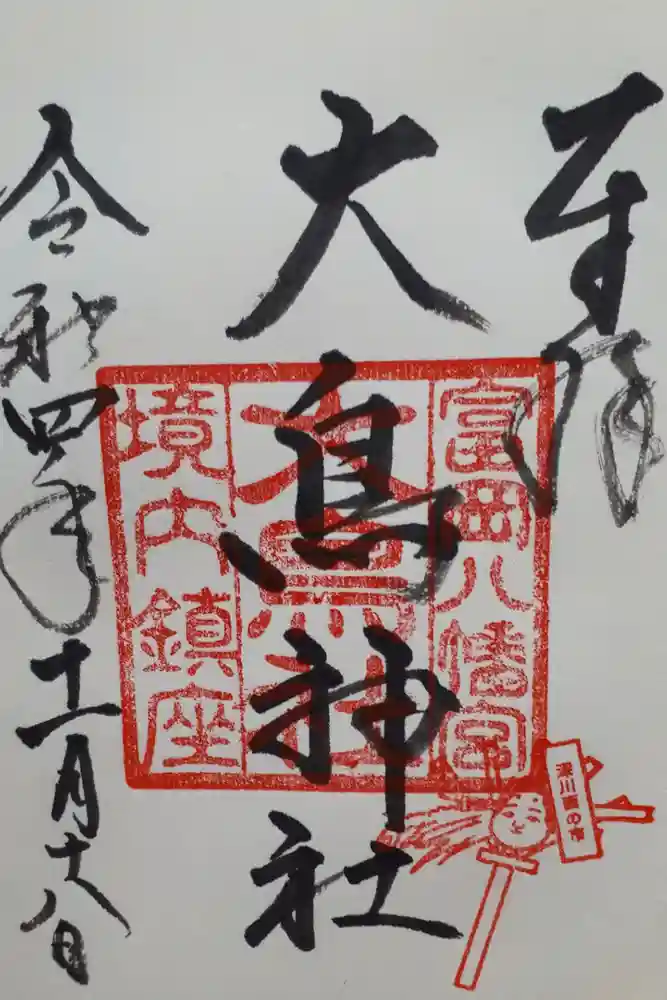 奉拝
大鳥神社
令和四年十一月十八日
富岡八幡宮
大鳥神社
境内鎮座